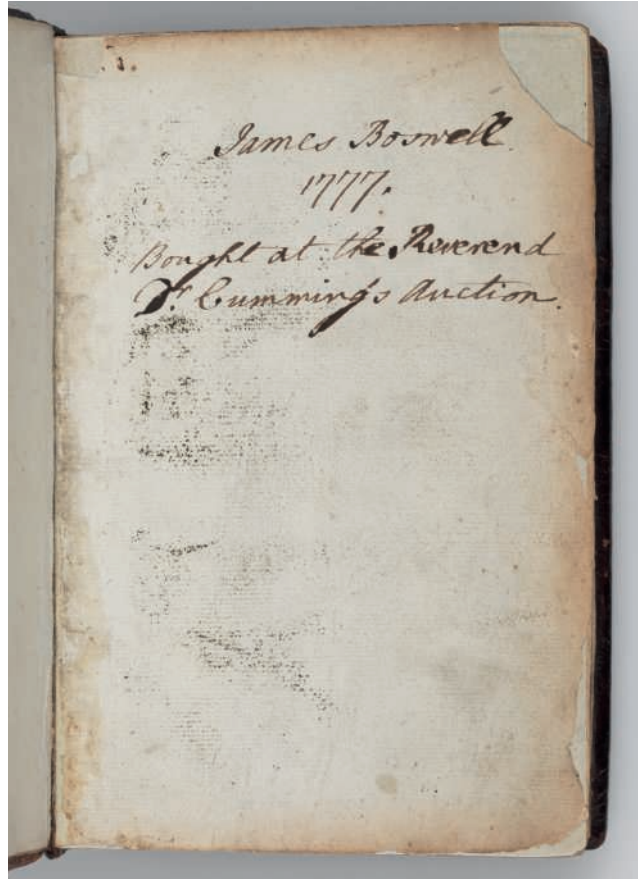 James Boswell.
1777.
Bought at the Reverend
Dr. Cumming's Auction.